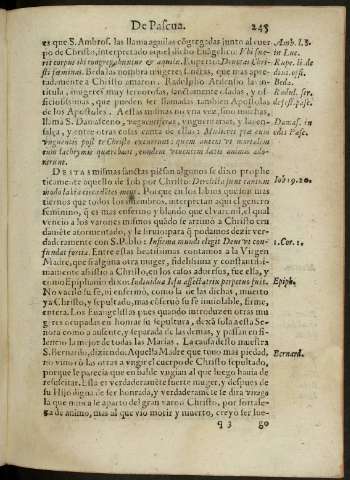 De Pascua.
245
es que S. Ambros. las llama aguilas cõgregadas junto al cuer-
po de Christo, interpretado aquel dicho Euãgelico: Vbi fue-
rit corpus ibi congregabuntur & aquilæ. Ruperto: Deuotas Chri-
sti fœminas. Beda las nombra mugeres
tadamente a Christo amaron. Radulpho Ardenso la in-
titula, mugeres muy feruorosas, sanctamente osadas, y of-
ficiosissimas, que pueden ser llamadas tambien Apostolas
de los Apostoles. A estas mismas no vna vez, sino muchas,
llama S. Damasceno,
salça, y entre otras cosas canta de ellas: Mulieres piæ cum
vnguentis post te Christe
cum lachrymis quærebant,
rauerunt.
DESTAS mismas sanctas piẽsan algunos se dixo prophe-
ticamente aquello de Iob por Christo: Derelicta sunt tantum
modo labia circa dentes meos. Porque en los libros que son mas
tiernos que todos los miembros, interpretan aqui el genero
femenino, q̃ es mas enfermo y blando que el varonil, el qual
vencio a los varones en
dãmẽte atormentado, y le
daderamente con S. Pablo: Infirma mundi elegit Deus vt con-
fundat fortia. Entre estas beatissimas contamos a la Virgen
Madre, que fue alguna otra muger, fidelissima y constantissi-
mamente assistio a Christo, en los casos aduersos, fue ella, y
como Epiphanio dize:
No vacilò su fe, ni enfermò, como la de las dichas, muerto
ya Christo, y sepultado, mas conseruò su fe inuiolable, firme,
entera. Los Euangelistas pues quando introduzen otras mu-
geres ocupadas en honrar su sepultura, dexã sola a esta Se-
ñora como a ausente, y separada de las demas, y passan en si-
lencio la mejor de todas las Marias. La causa desto muestra
S. Bernardo, diziendo: Aquella Madre que tuuo mas piedad
no vino cõ las otras a vngir el cuerpo de Christo sepultado,
porque le parecia que en balde vngian al que luego hauia de
resuscitar. Esta es verdaderamẽte fuerte muger, y despues de
su Hijo digna de ser honrada, y verdaderamẽte se dira virago
la que nunca se aparto del gran varõ Christo, por fortale-
ga de animo, mas al que vio morir y muerto, creyò ser lue-
q 3
go
Amb. l. 8.
in Luc.
Rupe. li. de
diui. offi.
Beda.
Radul. ser.
de fest. pasc.
Damas. in
odis Pasc.
Iob 19. 20.
1. Cor. 1.
Epiph.
Bernard.